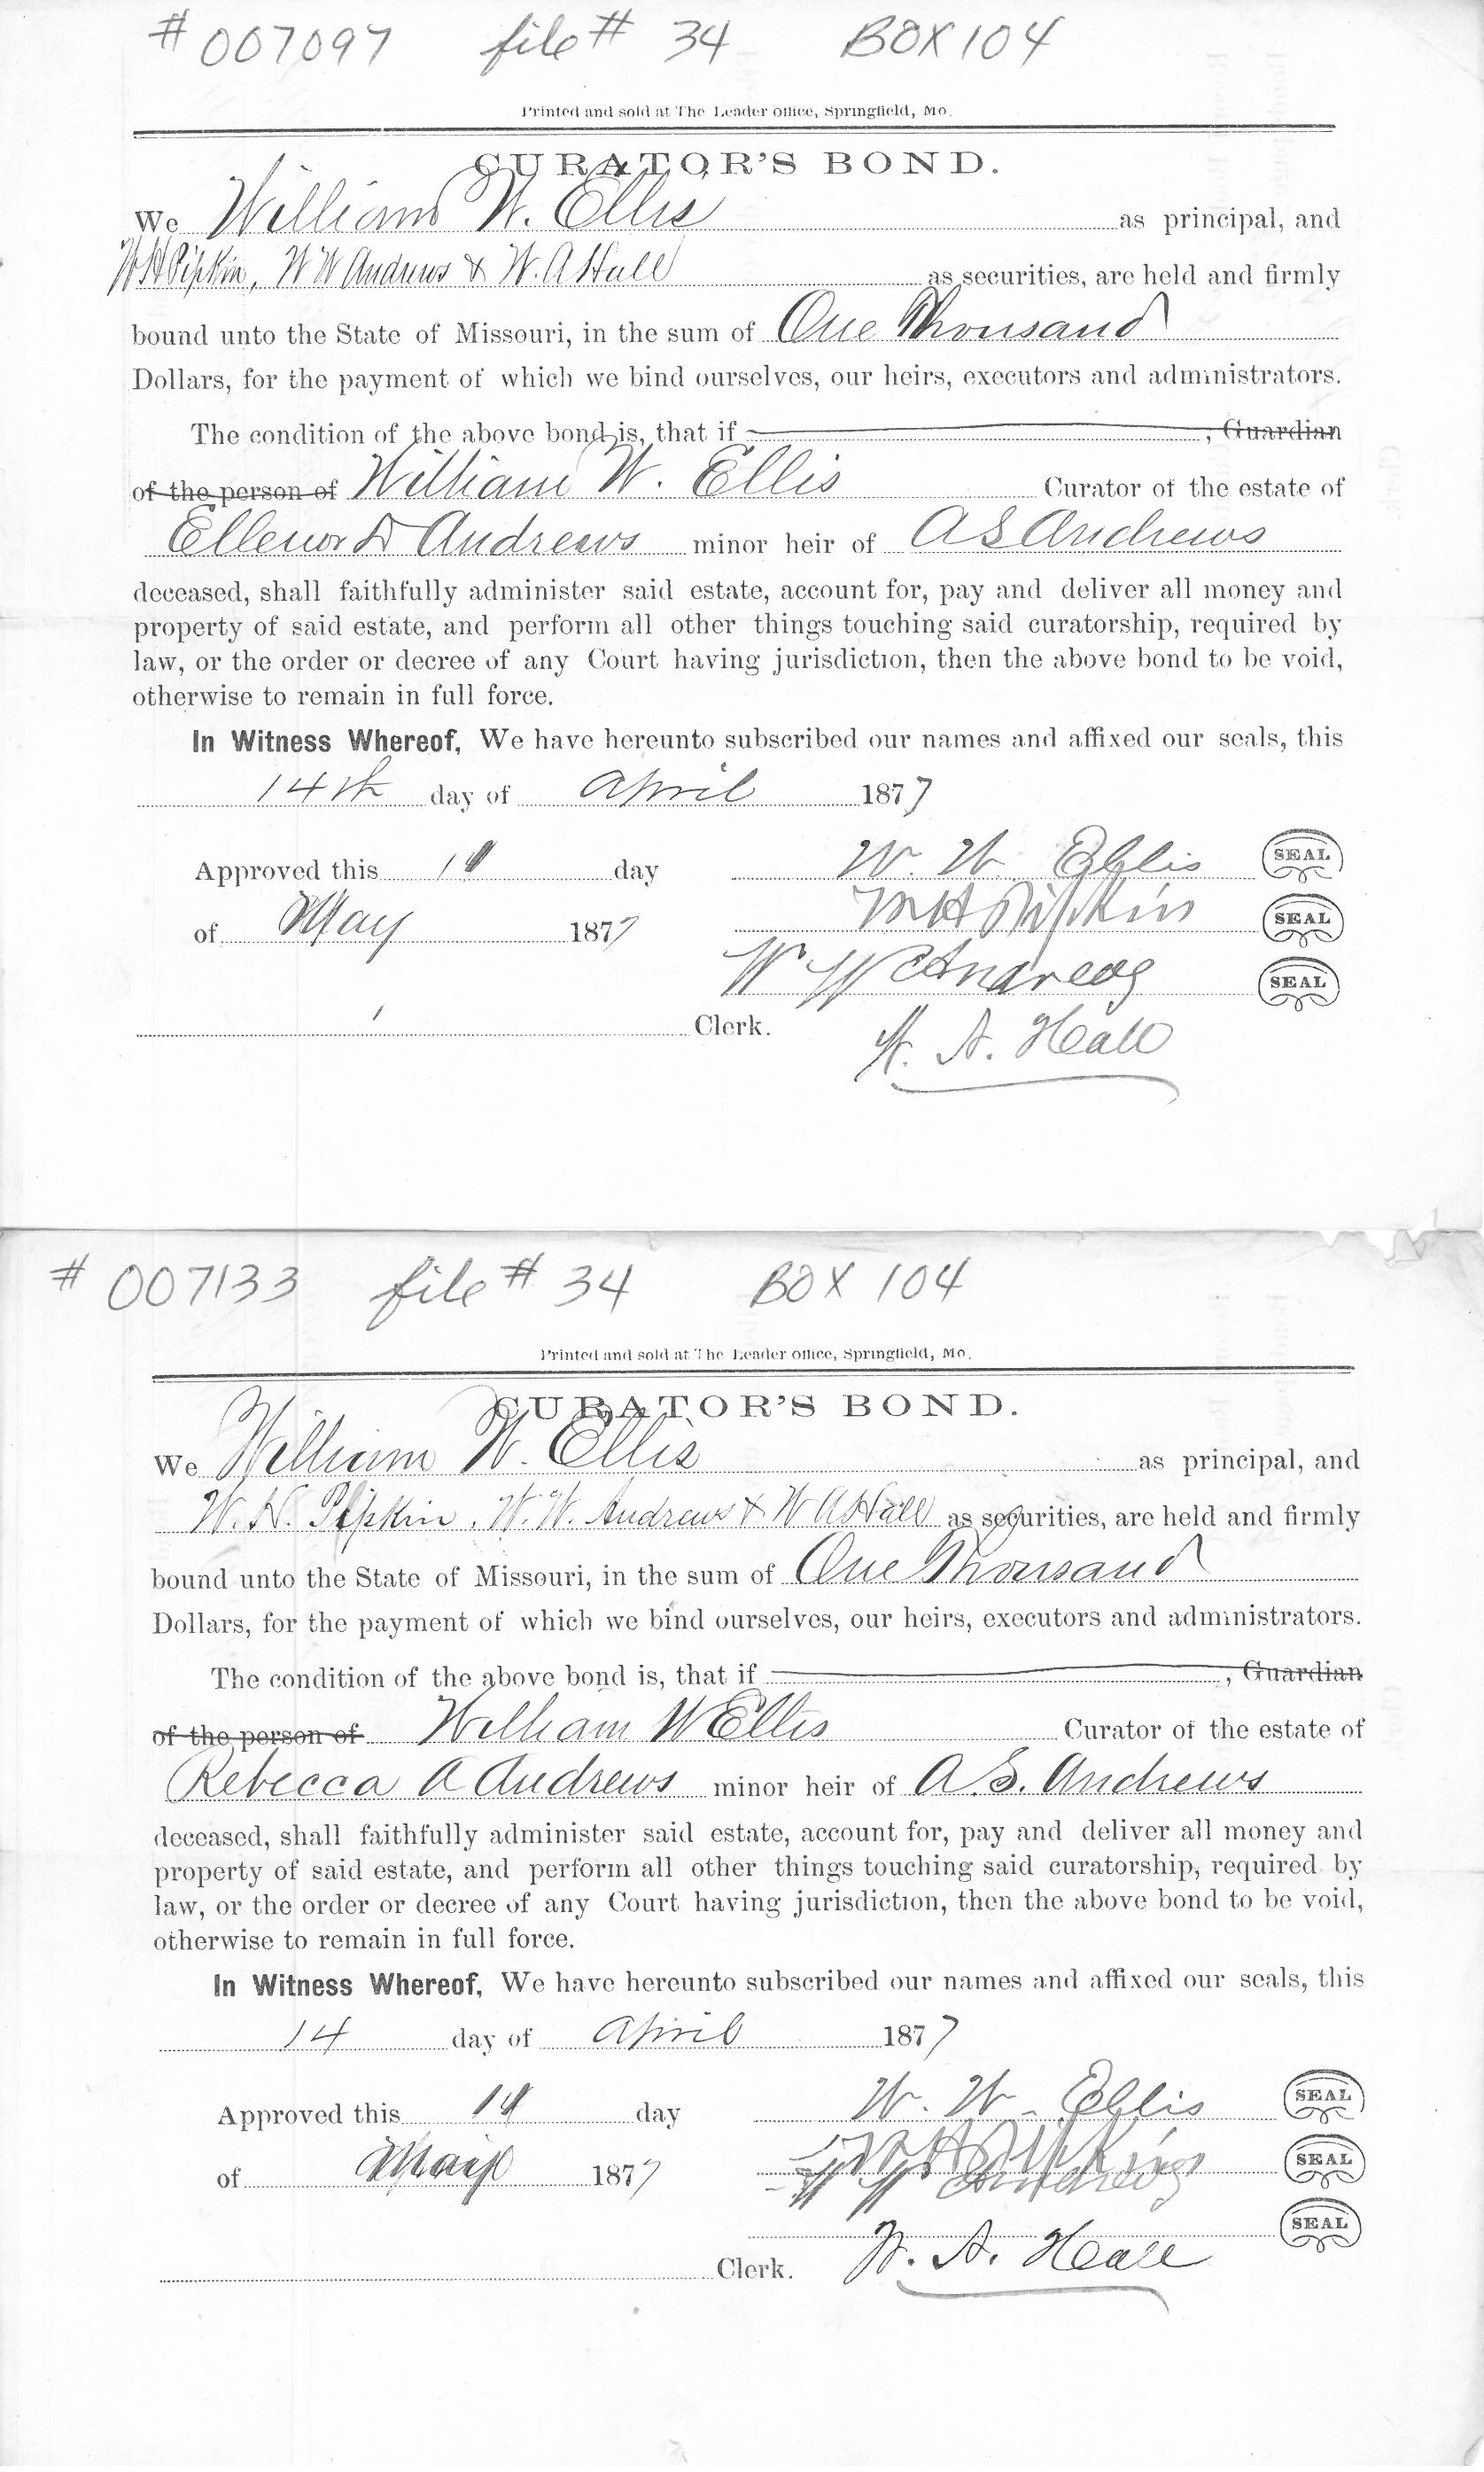 # 007097 file # 34 BOX 104
Printed and sold at The Leader office, Springfield, Mo.
CURATOR'S BOND.
We William W. Ellis as principal, and
W H Pipkin, W W Andrews & W. A Hall as securities, are held and firmly
bound unto the State of Missouri, in the sum of One Thousand
Dollars, for the payment of which we bind ourselves, our heirs, executors and administrators.
The condition of the above bond is, that if , Guardian
of the person of William W. Ellis Curator of the estate of
Ellenor D Andrews minor heir of A S Andrews
deceased, shall faithfully administer said estate, account for, pay and deliver all money and
property of said estate, and perform all other things touching said curatorship, required by
law, or the order or decree of any Court having jurisdiction, then the above bond to be void,
otherwise to remain in full force.
In Witness Whereof, We have hereunto subscribed our names and affixed our seals, this
14th day of April 1877
Approved this day W. W. Ellis SEAL
of May 1877 W H Pipkin SEAL
W W Andrews SEAL
Clerk. W. A. Hall
# 007133 file # 34 BOX 104
Printed and sold at The Leader office, Springfield, Mo.
CURATOR'S BOND.
We William W. Ellis as principal, and
W. H. Pipkin, W. W. Andrews & W A Hall as securities, are held and firmly
bound unto the State of Missouri, in the sum of One Thousand
Dollars, for the payment of which we bind ourselves, our heirs, executors and administrators.
The condition of the above bond is, that if , Guardian
of the person of William W Ellis Curator of the estate of
Rebecca A Andrews minor heir of A. S. Andrews
deceased, shall faithfully administer said estate, account for, pay and deliver all money and
property of said estate, and perform all other things touching said curatorship, required by
law, or the order or decree of any Court having jurisdiction, then the above bond to be void,
otherwise to remain in full force.
In Witness Whereof, We have hereunto subscribed our names and affixed our seals, this
14 day of April 1877
Approved this day W. W. Ellis SEAL
of May 1877 W H Pipkin SEAL
W W Andrews
SEAL
Clerk. W. A. Hall